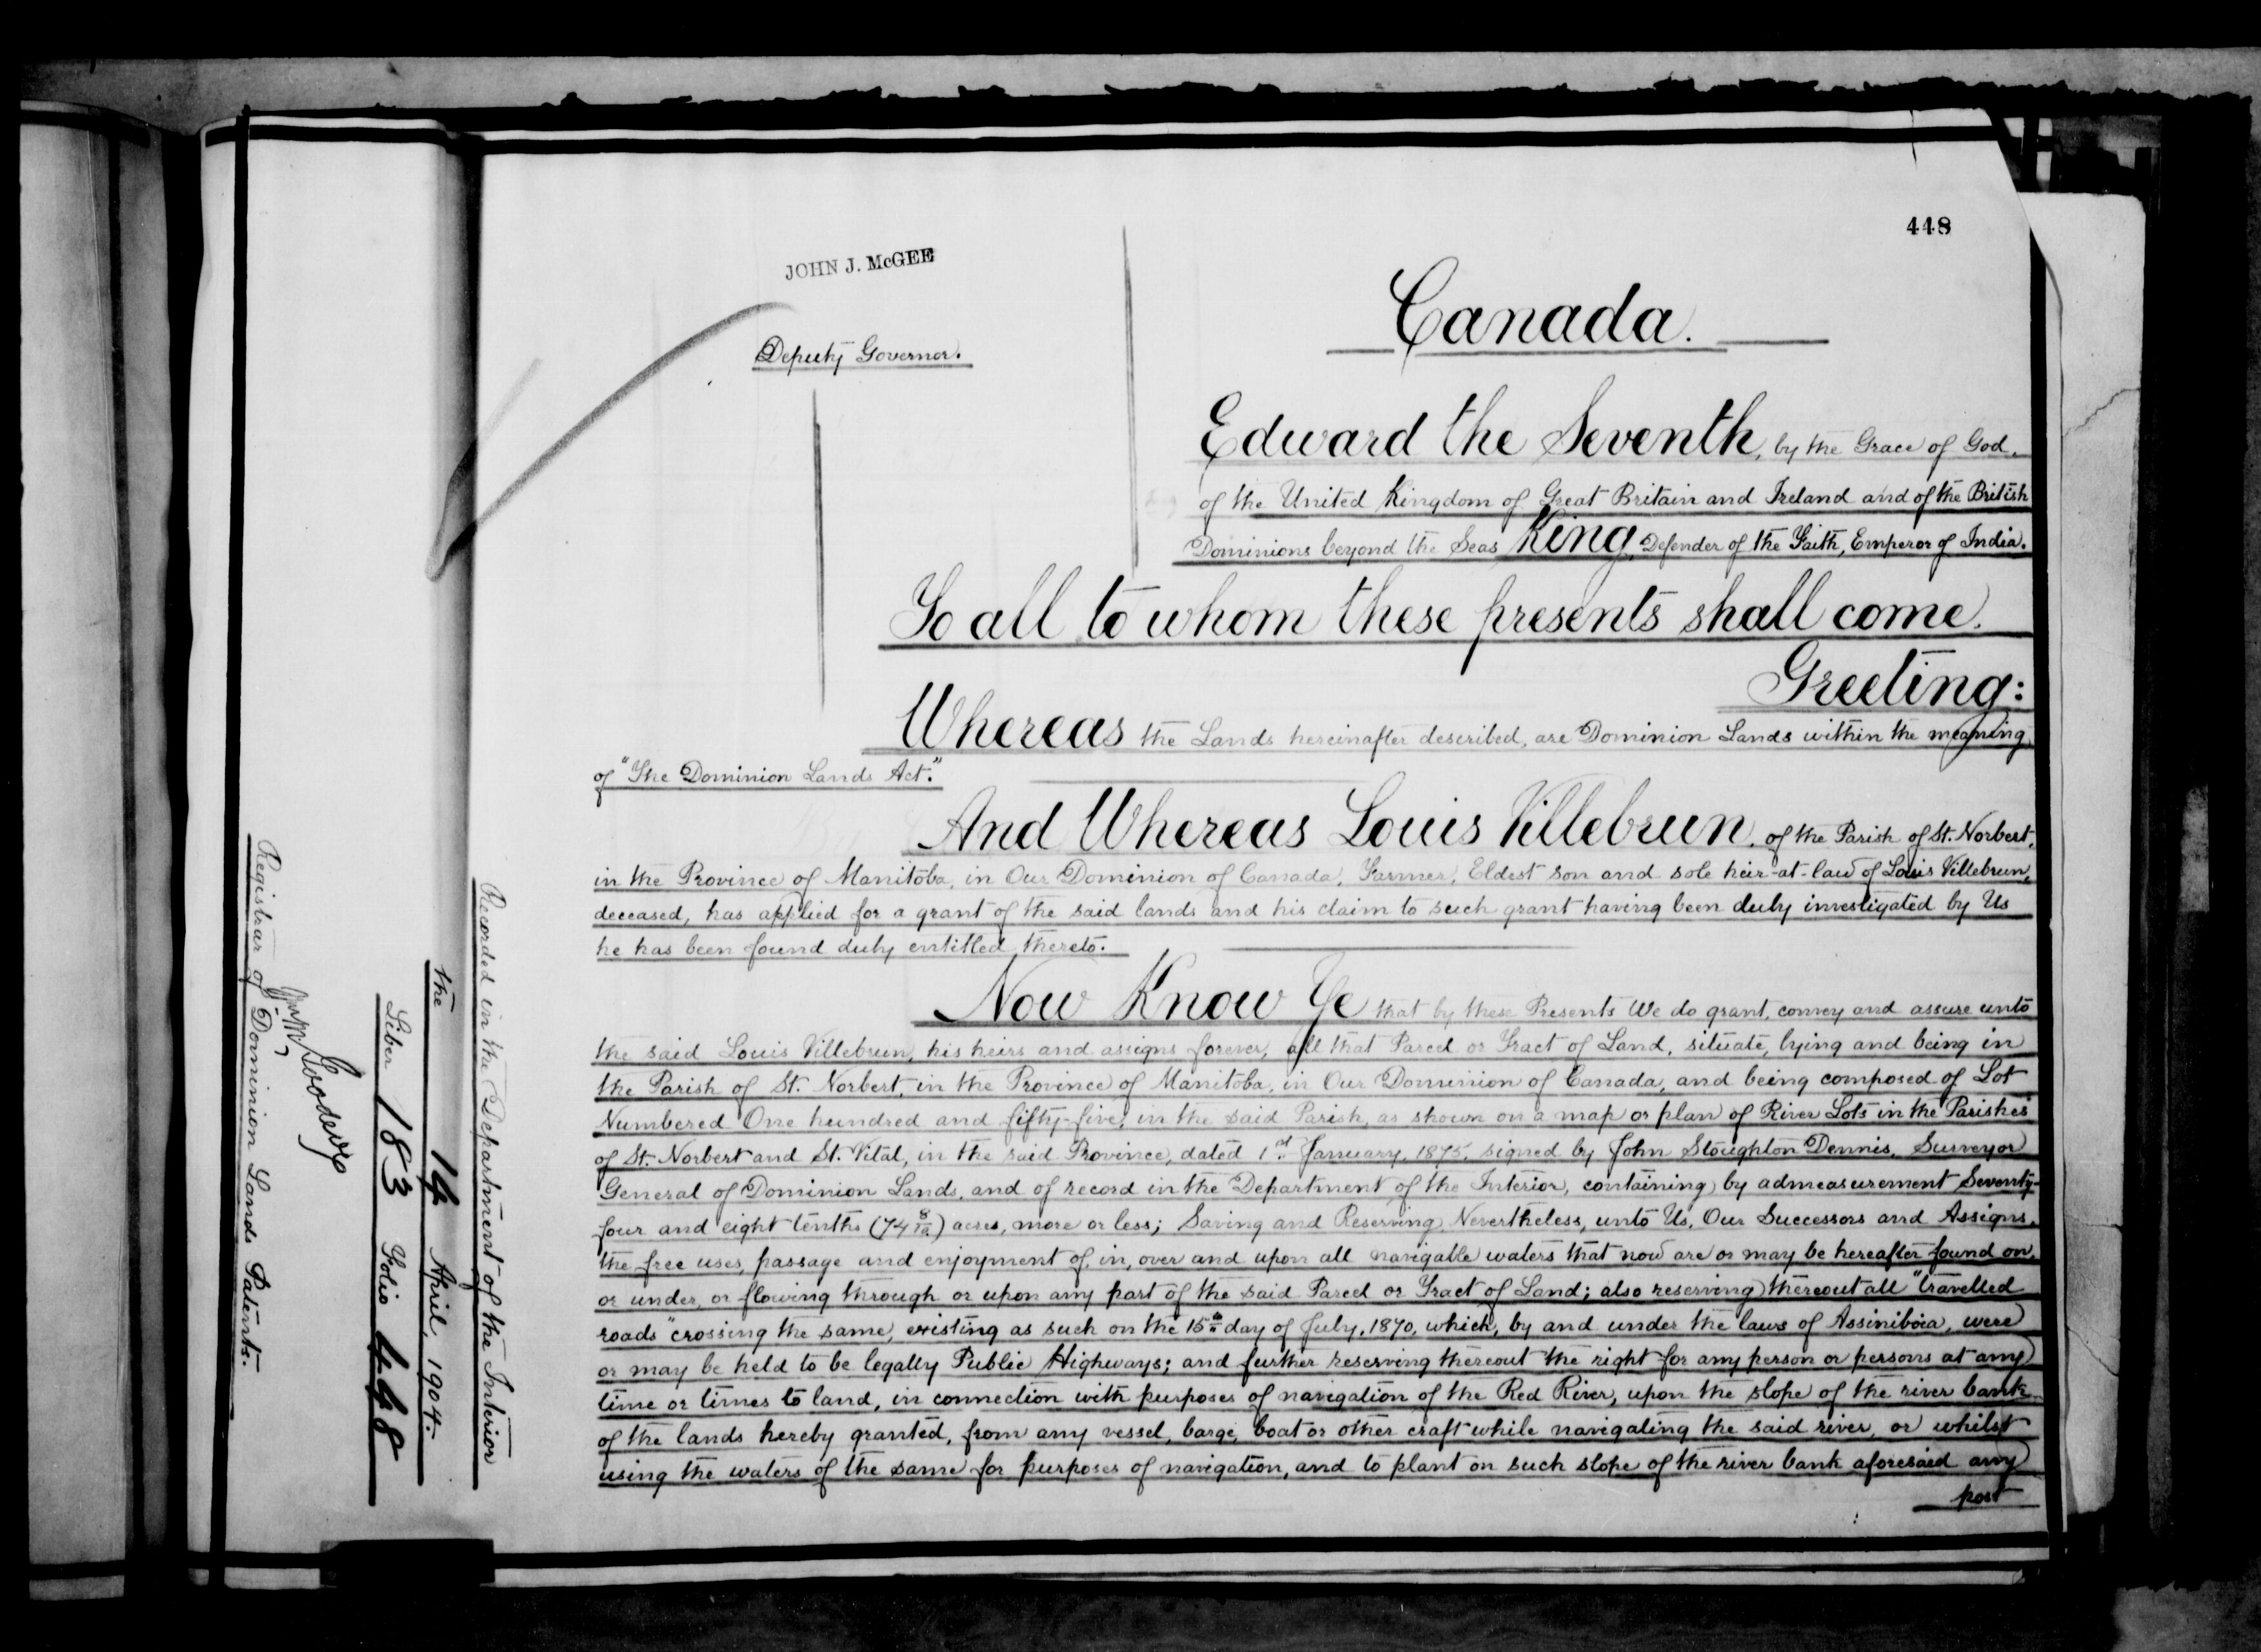 448
JOHN J. McGEE
Deputy Governor.
Canada.
Edward the Seventh, by the Grace of God,
of the United Kingdom of Great Britain and Ireland and of the British
Dominions beyond the Seas King, Defender of the Faith, Emperor of India.
To all to whom these presents shall come.
Greeting:
Whereas the Lands hereinafter described, are Dominion Lands within the meaning
of "The Dominion Lands Act."
And Whereas Louis Villebrun, of the Parish of St. Norbert,
in the Province of Manitoba, in Our Dominion of Canada, Farmer, Eldest son and sole heir-at-law of Louis Villebrun,
deceased, has applied for a grant of the said lands and his claim to such grant having been duly investigated by Us
he has been found duly entitled thereto.
Now Know Ye that by these Presents We do grant, convey and assure unto
the said Louis Villebrun, his heirs and assigns forever, all that Parcel or Tract of Land, situate, lying and being in
the Parish of St. Norbert, in the Province of Manitoba, in Our Dominion of Canada, and being composed of Lot
Numbered One hundred and fifty-five, in the said Parish, as shown on a map or plan of River Lots in the Parishes
of St. Norbert and St. Vital, in the said Province, dated 1st January, 1875, signed by John Stoughton Dennis, Surveyor
General of Dominion Lands, and of record in the Department of the Interior, containing by admeasurement Seventy-
four and eight tenths (74 8/10) acres, more or less; Saving and Reserving, Nevertheless, unto Us, Our Successors and Assigns,
the free uses, passage and enjoyment of, in, over and upon all navigable waters that now are or may be hereafter found on,
or under, or flowing through or upon any part of the said Parcel or Tract of Land; also reserving thereout all "travelled
roads" crossing the same, existing as such on the 15th day of July, 1870, which, by and under the laws of Assiniboia, were
or may be held to be legally Public Highways; and further reserving thereout the right for any person or persons at any
time or times to land, in connection with purposes of navigation of the Red River, upon the slope of the river bank
of the lands hereby granted, from any vessel, barge, boat or other craft while navigating the said river, or whilst
using the waters of the same for purposes of navigation, and to plant on such slope of the river bank aforesaid any
post
Recorded in the Department of the Interior
the 14 April, 1904.
Liber 183 Folio 448
Registrar of Dominion Lands Patents.